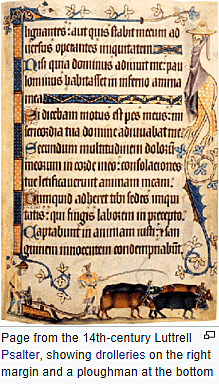 lignantes: aut quis stabit mecum ad
versus operantes iniquitatem
Nisi quia dominus adiuvit me: pau
lominus habitasset in inferno anima
mea
Si dicebam motus est pes meus: mi
sericordia tua domine adiuvabat me
Secundum multitudinem dolorum
meorum in corde meo: consolationes
tue letificaverunt animam meam
Numquid adheret tibi sedes iniqui
tatis: qui fingis laborem in precepto
Captabunt in animam iusti: et san
guinem innocentem condempnabunt
Page from the 14th-century Luttrell
Psalter, showing drolleries on the right
margin and a ploughman at the bottom